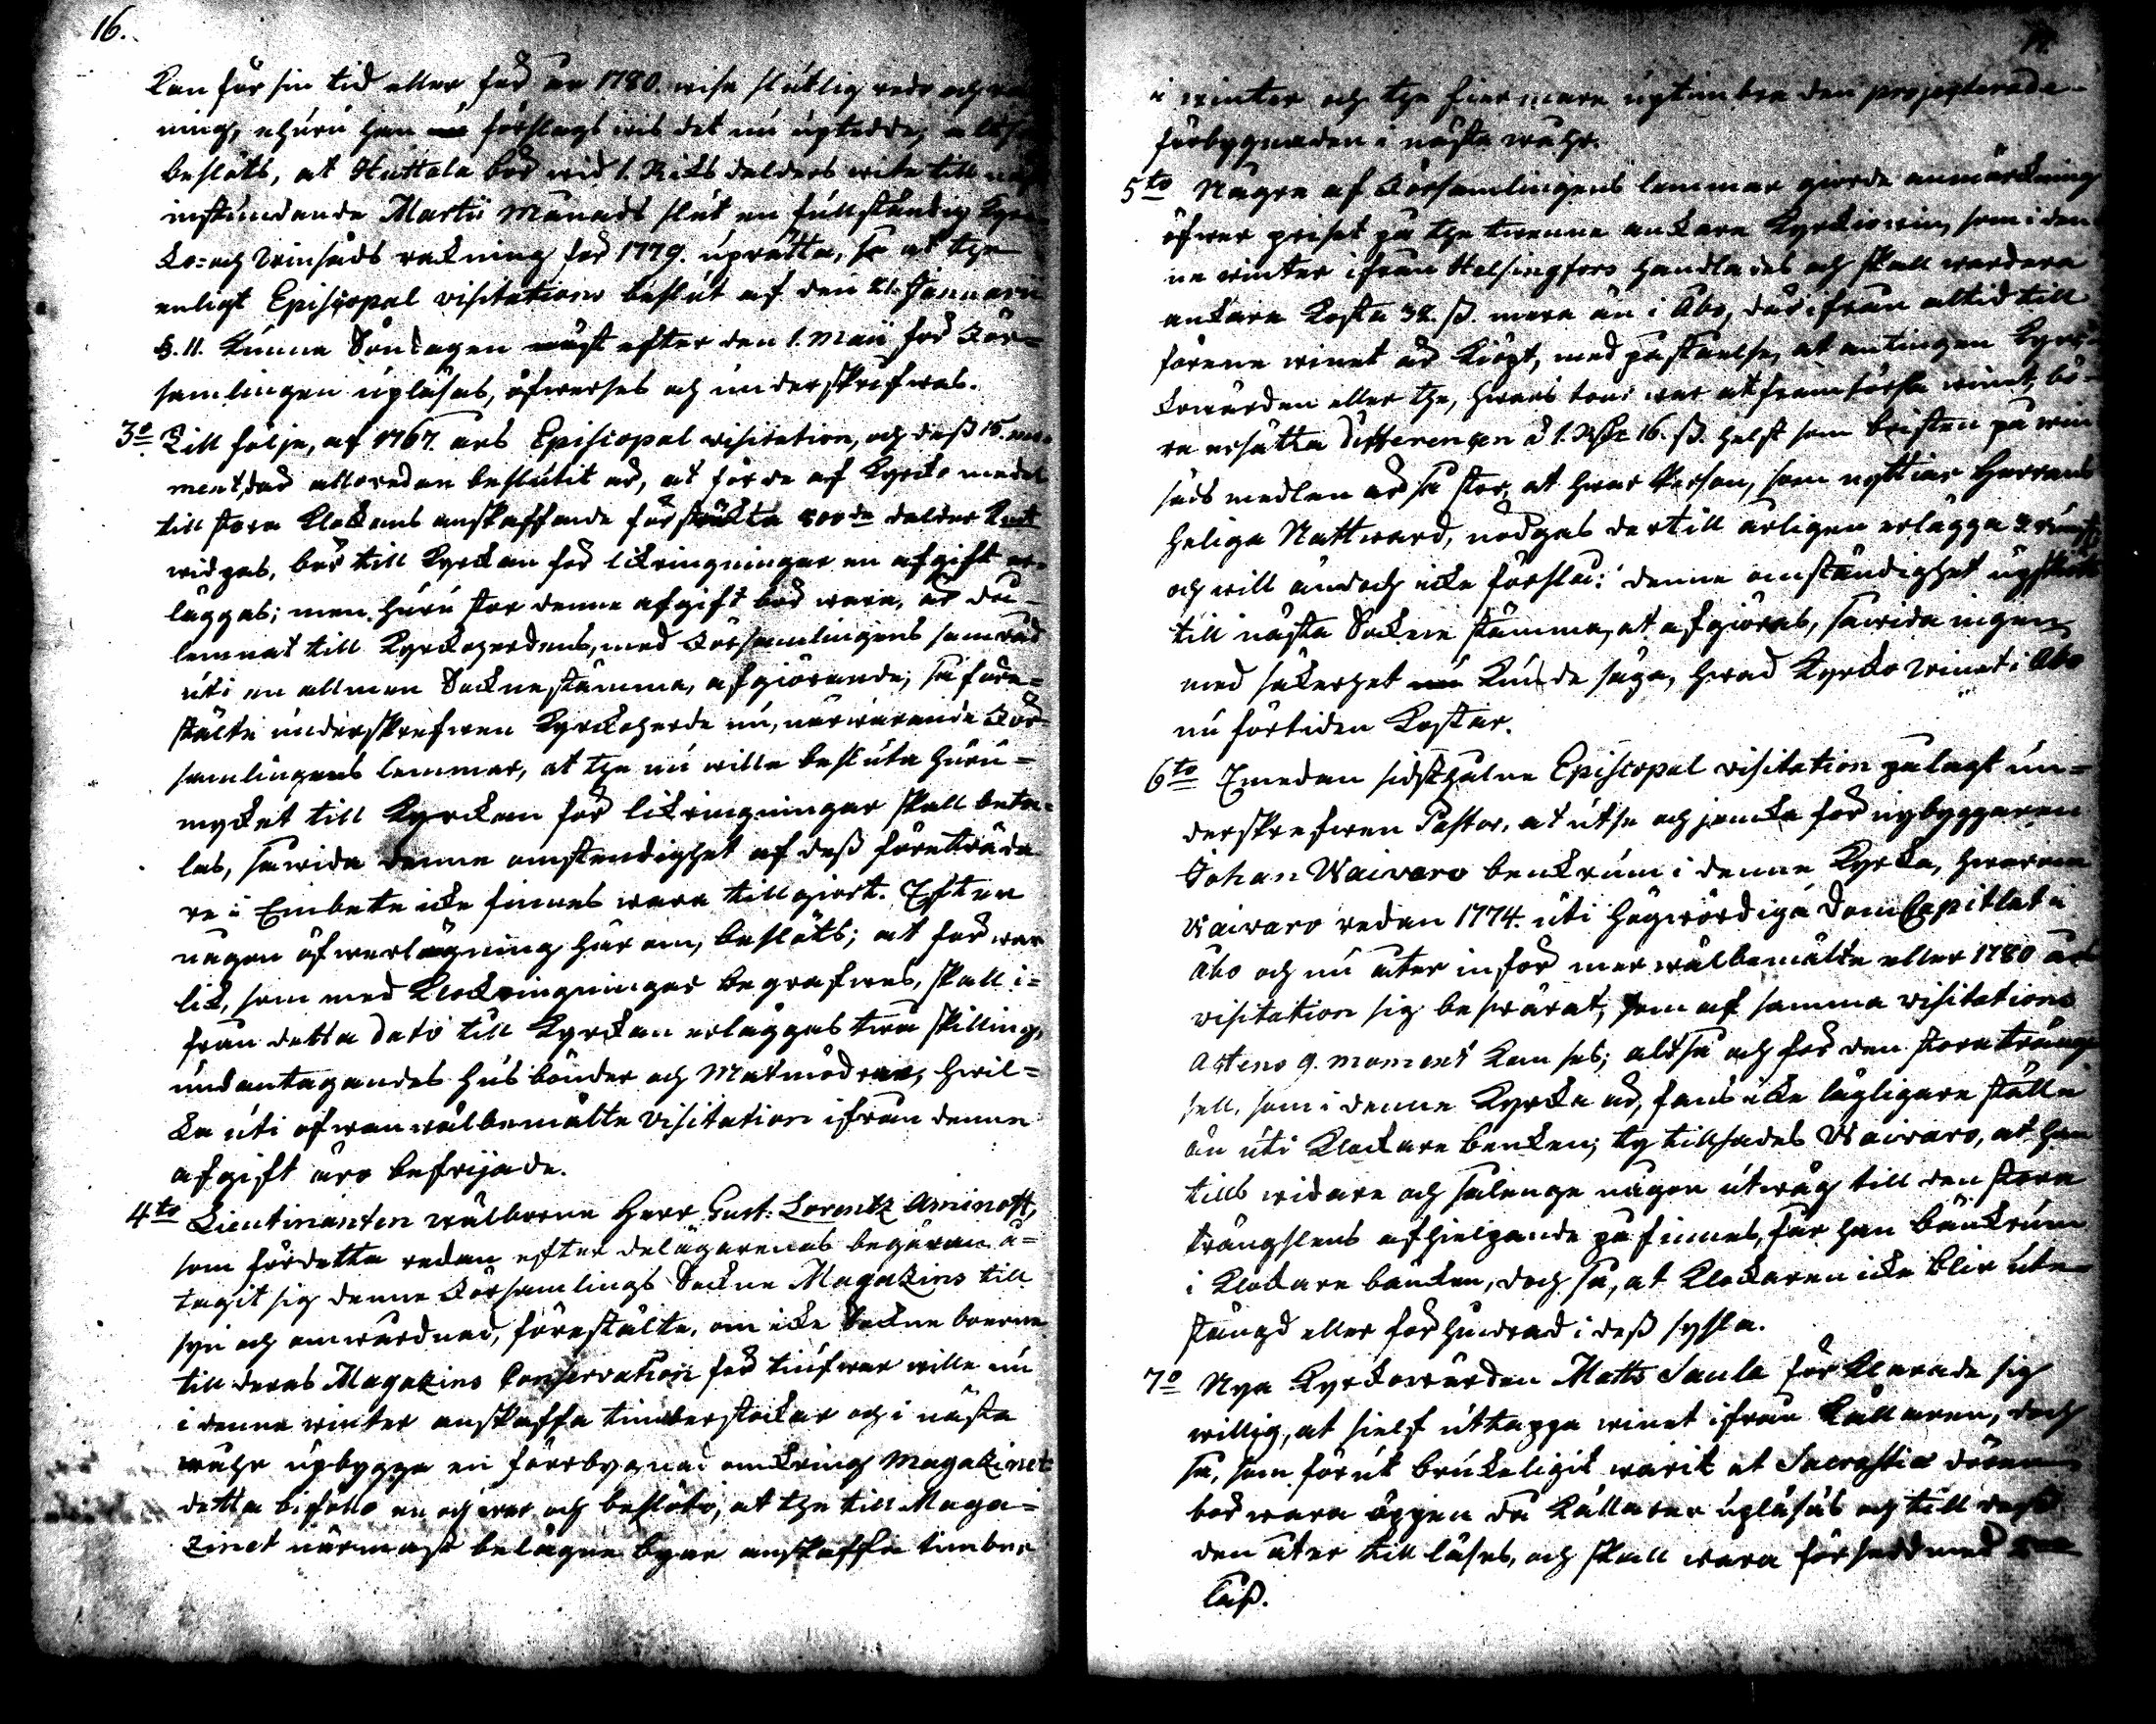 16.
kan för sin tid eller för år 1780. wisa slutlig redo och räk
ning, ehuru han förslags wis det nu uptedde; altså
beslöts, at Huttala bör wid 1. Riks dalders wite till näst
instundande Martii Månads slut en fullständig Kyr-
ko- och Winsäds räkning för 1779. uprätta, så at the
enligt Episcopal visitations beslut af den 21. Januarii
§. 11. kunna Söndagen näst efter den 1. Maii för För=
samlingen upläsas, öfwerses och underskrifwas.
3o Till följe, af 1767. års Episcopal visitation, och dess 15. mo-
ment, där allaredan beslutit är, at för de af Kyrko medel
till stora Klockans anskaffande förstäckta 800de daler Kmt
widgas, bör till Kyrckan för likringningar en afgift er-
läggas; men huru stor denne afgift bör wara, är då
lemnat till Kyrckoherdens, med Församlingens samråd
uti en allmen Socknestämma, afgiörande; så före=
stälte underskrefwen Kyrckoherde nu, närwarande För=
samlingens lemmar, at the nu wille besluta huru=
mycket till Kyrckan för likringningar skall beta=
las, sawida denne omständighet af dess företräda
re i Embete icke finnes wara tillgiort. Efter
någon öfwerlägning här om, beslöts; at för war
lik, som med Klockringningar begrafwes, skall i=
från detta dato till Kyrckan erläggas twå skilling,
undantagandes Husbönder och Matmödrar, hwil=
ka uti ofwanwälbemälte Visitation ifrån denne
afgift äro befrijade.
4to Lieutinanten wälborne Herr Gust: Lorentz Aminoff,
som för detta redan efter delägarenas begäran å=
tagit sig denne Församlings Sockne Magazins till
syn och omwårdnad, förestälte, om icke Socknboerne
till deras Magazins Conservation för tiufwar wille nu
i denne winter anskaffa timberstockar och i nästa
wåhr upbygga en förebygnad omkring Magazinet
detta biföllo en och war och beslöto, at the till Maga=
zinet närmast belägne byar anskaffa timber
17.
i winter och the fier mare uptimbra den projecterade
förbygnaden i nästa wåhr.
5to Några af Församlingens lemmar giorde anmärckning
öfwer priset på the twenne anckare Kyrckiowin, som i den
ne winter ifrån Helsingfors handlades och skall wardera
anckare kosta 32. ß. mera än i Åbo, därifrån altid till
förene winet är kiöpt, med påståelse, at antingen Kyrc
kowärden eller the, hwars tour war at framförsla winet, bö-
ra ersätta differencen á 1. Rdr 16. ß. helst som bristen på win
säds medlen är så stor, at hwar Person, som nyttiar Herrans
Heliga Nattward, nödgas dertill årligen erlägga
och will ändoch icke förslå: denne omständighet upsköts
till nästa Sockne stämma, at afgiöras, sawida ingen
med säkerhet kunde säga, hwad Kyrko Winet i Åbo
nu förtiden kostar.
6to Emedan sidsthålne Episcopal visitation pålagt un=
derskrefwen Pastor, at utse och jemka för nybyggaren
Johan Waivaro bänkrum i denne Kyrcka, hwarom
Waivaro redan 1774. uti Högwördiga Dom Capitlet i
Åbo och nu åter inför mer wälbemälte eller 1780 års
visitation sig beswärat, som af samma visitations
Actens 9. moment kan ses; altså och för den stora trång
sell, som i denne Kyrcka är, fans icke lägligare ställe
än uti Klockare bencken; ty tillsades Waivaro, at han
tills widare och sålenge någon utwäg till den stora
trångslens afhielpande på finnes, får han bänkrum
i Klockare bänken, doch så, at Klockaren icke blir ute=
stängd eller förhindrad i dess syssla.
7o Nya Kyrckowärden Matts Saula förklarade sig
willig, at sielf uttappa winet ifrån Källaren, doch
så, som förut brukeligit warit at Sacrastiæ dören
bör wara öppen då Källaren upläses och till dess
den åter till läses, och skall wara försedd med
låss.